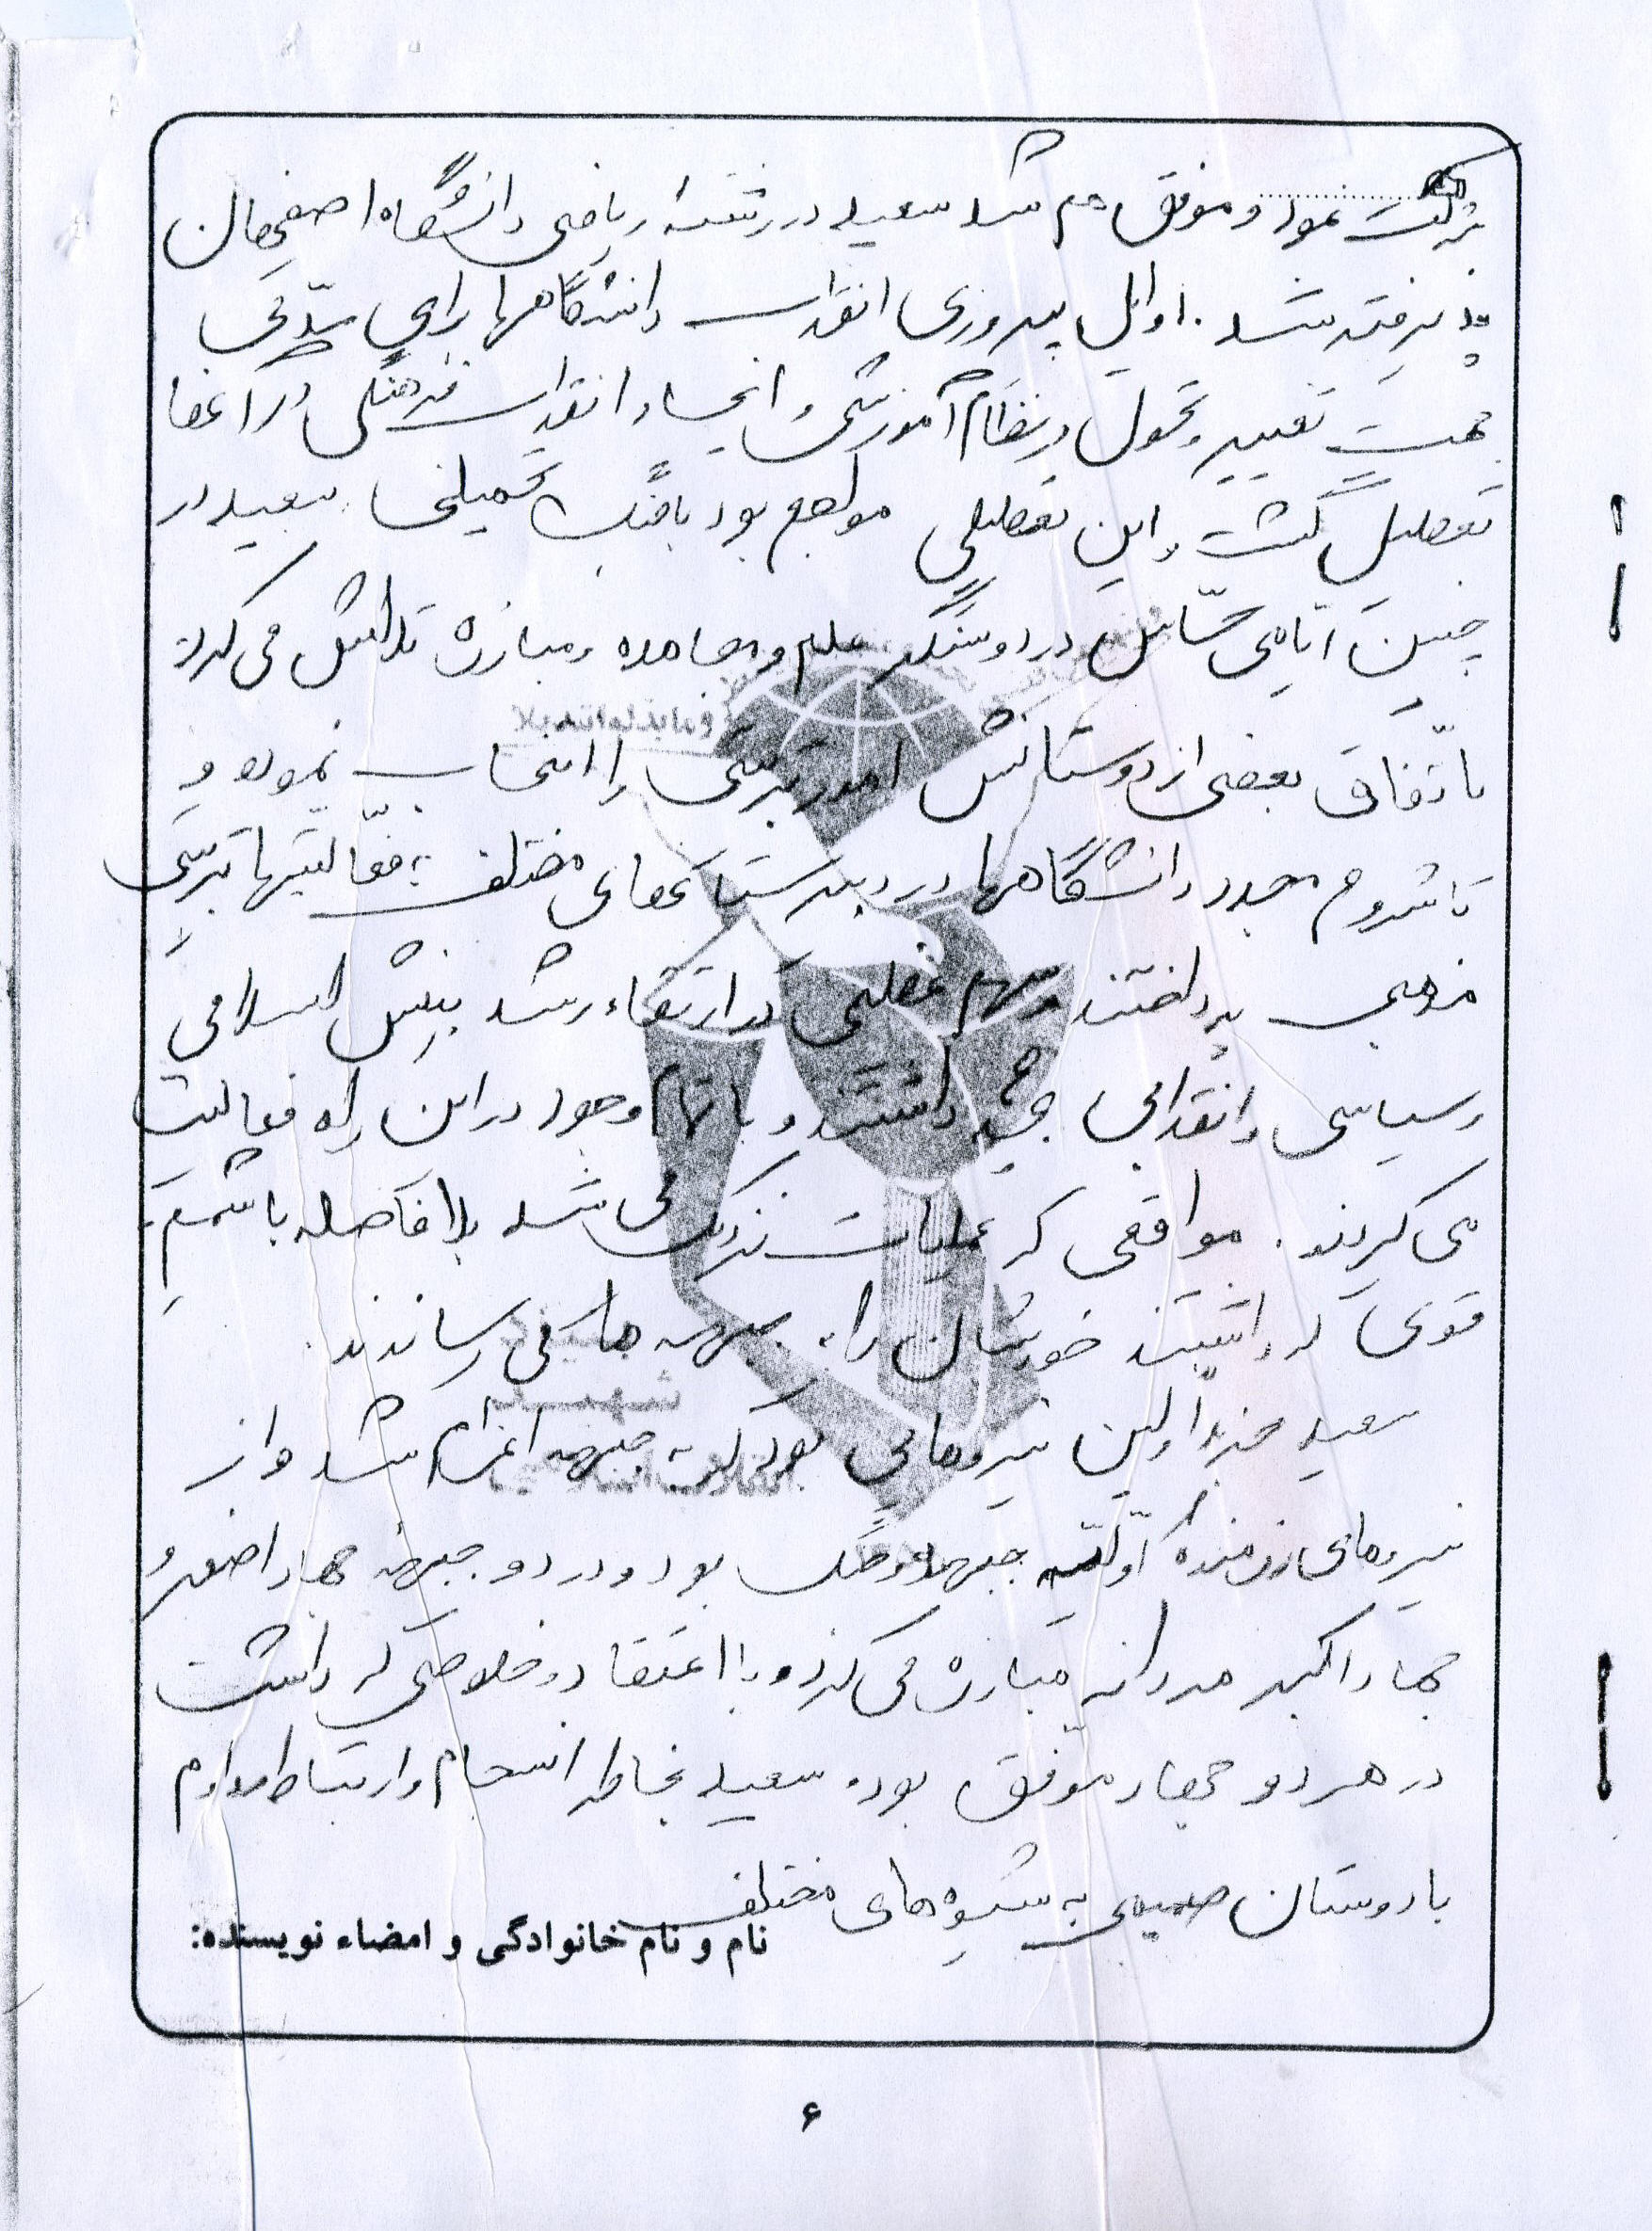 شرکت نمود و موفق هم شد سعید در رشته ریاضی دانشگاه اصفهان
پذیرفته شد. اوایل پیروزی انقلاب دانشگاهها برای مدّتی
جهت تغییر و تحول در نظام آموزشی و ایجاد انقلاب فرهنگی در آنها
تعطیل گشت و این تعطیلی مواجه بود با جنگ تحمیلی سعید در
چنین ایّامی حسّاس در دو سنگر علم و مجاهده و مبارزه تلاش می کرد
با اتّفاق بعضی از دوستانش امور تربیتی را انتخاب نموده و
تا شروع مجدد دانشگاهها در دبیرستانهای مختلف به فعّالیتهای تربیتی
مذهبی پرداختند و سهم عظیمی در ارتقاء رشد بینش اسلامی
و سیاسی و انقلابی داشتند و با تمام وجود در این راه فعالیت
می کردند. مواقعی که عملیات نزدیک می شد بلافاصله با شمّ
قوی که داشتند خودشان را به جبهه ها می رساندند.
سعید جزء اولین نیروهایی بود که به جبهه اعزام شد و از
نیروهای رزمنده اوّلیّه جبهه و جنگ بود و در دو جبهه جهاد اصغر و
جهاد اکبر مردانه مبارزه می کرد و با اعتقاد و خلاصی که داشت
در هر دو جهاد موفق بود. سعید بخاطر انسجام و ارتباط مداوم
با دوستان صمیمی به شیوه های مختلف
نام و نام خانوادگی و امضاء نویسنده:
۶